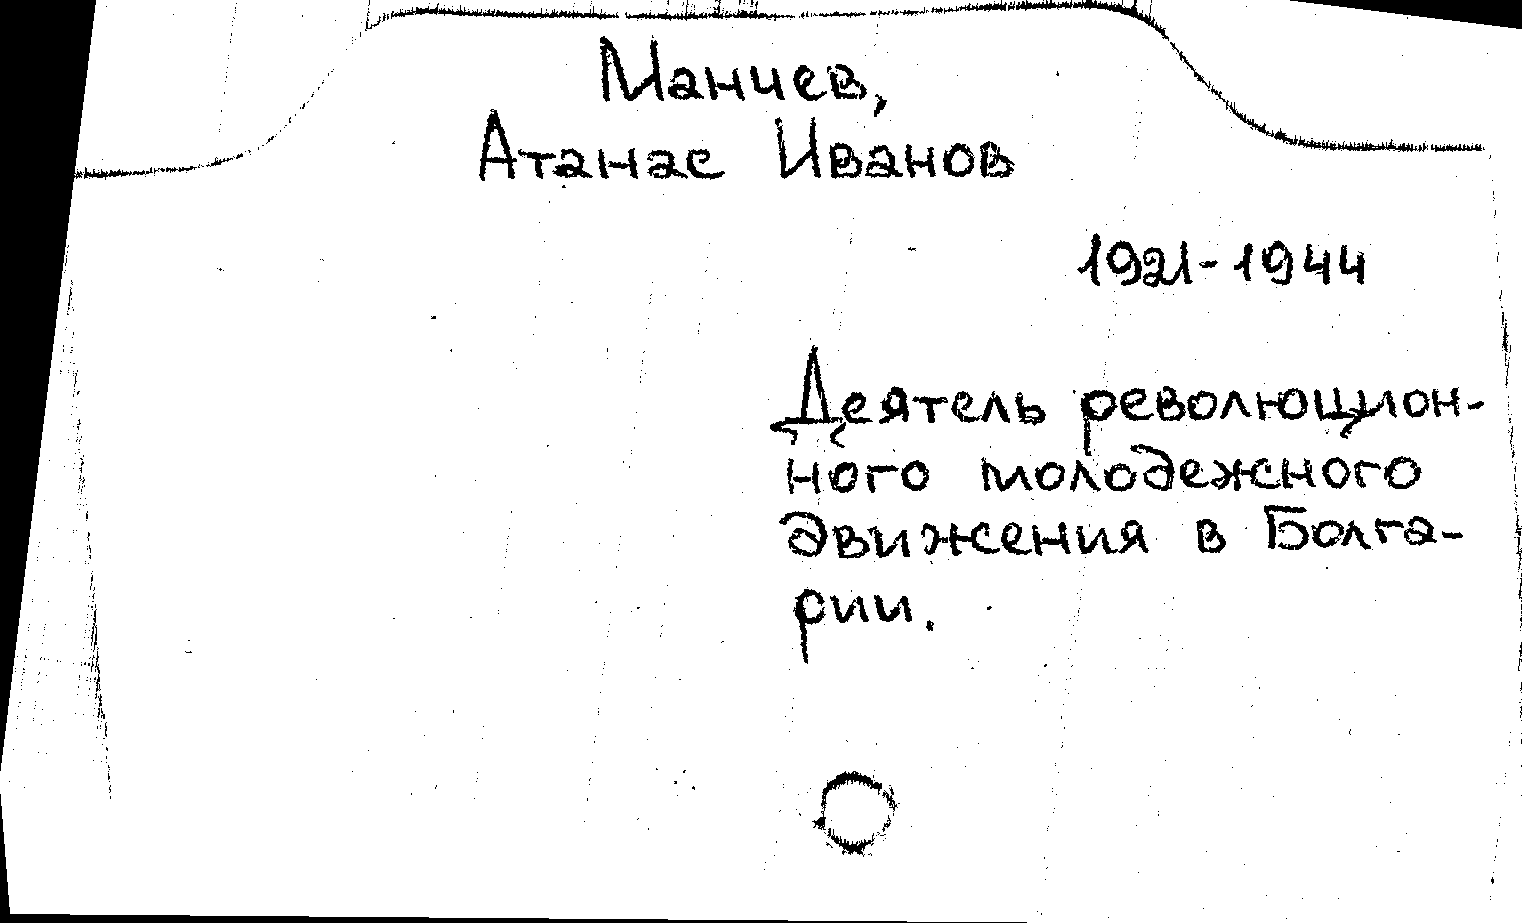 Манчев,
Атанас Иванов
1921-1944
Деятель революцион-
ного молодежного
движения в Болга-
рии.